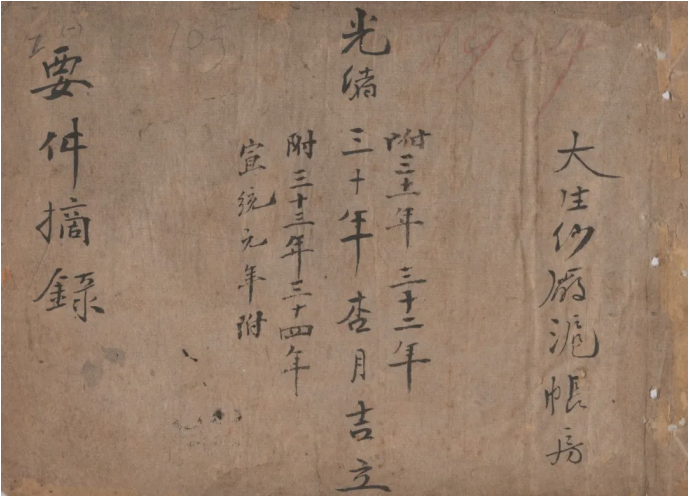 大生紗廠滬帳房
附三十一年 三十二年
光緒三十年杏月吉立
附三十三年三十四年
宣統元年附
要件摘錄
1904